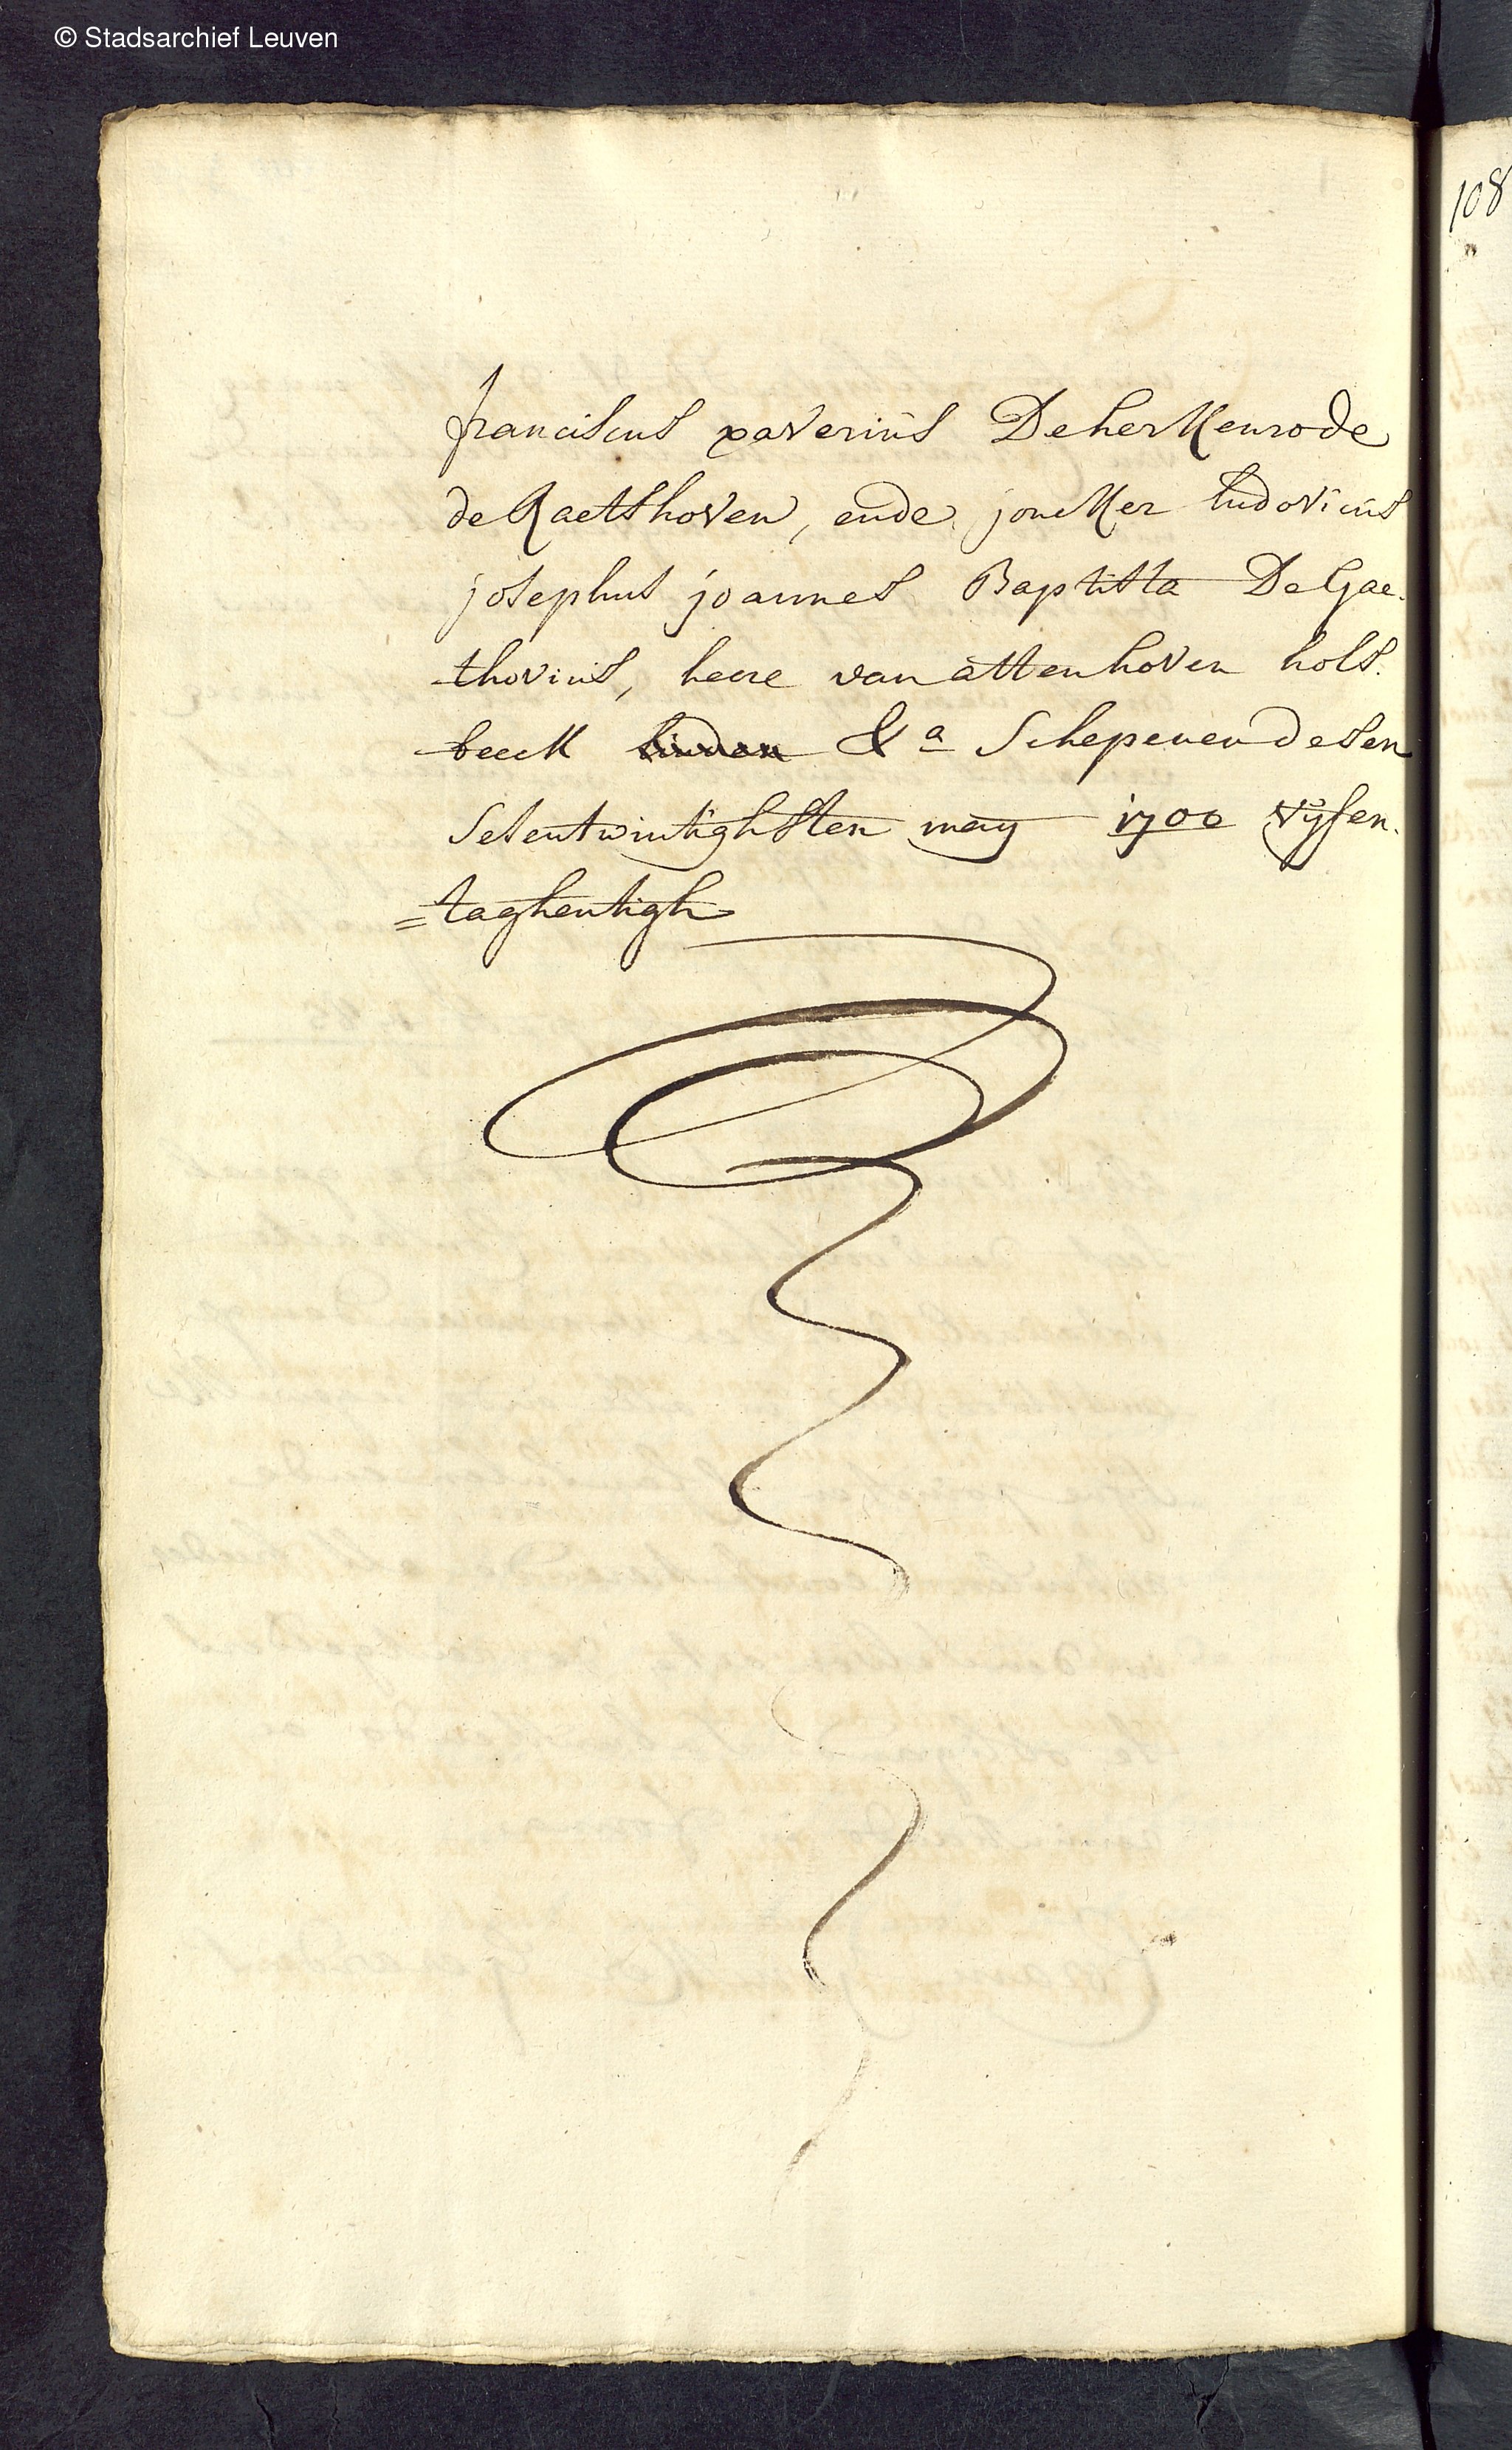 © Stadsarchief Leuven
108
franciscus xaverius De herkenrode
de Raetshoven, ende joncker ludovicus
josephus joannes Baptista De Gae-
thovius, heere van attenhoven hols-
beeck linden &a Schepenen desen
sesentwintighsten mey 1700 vyfen-
=taghentigh